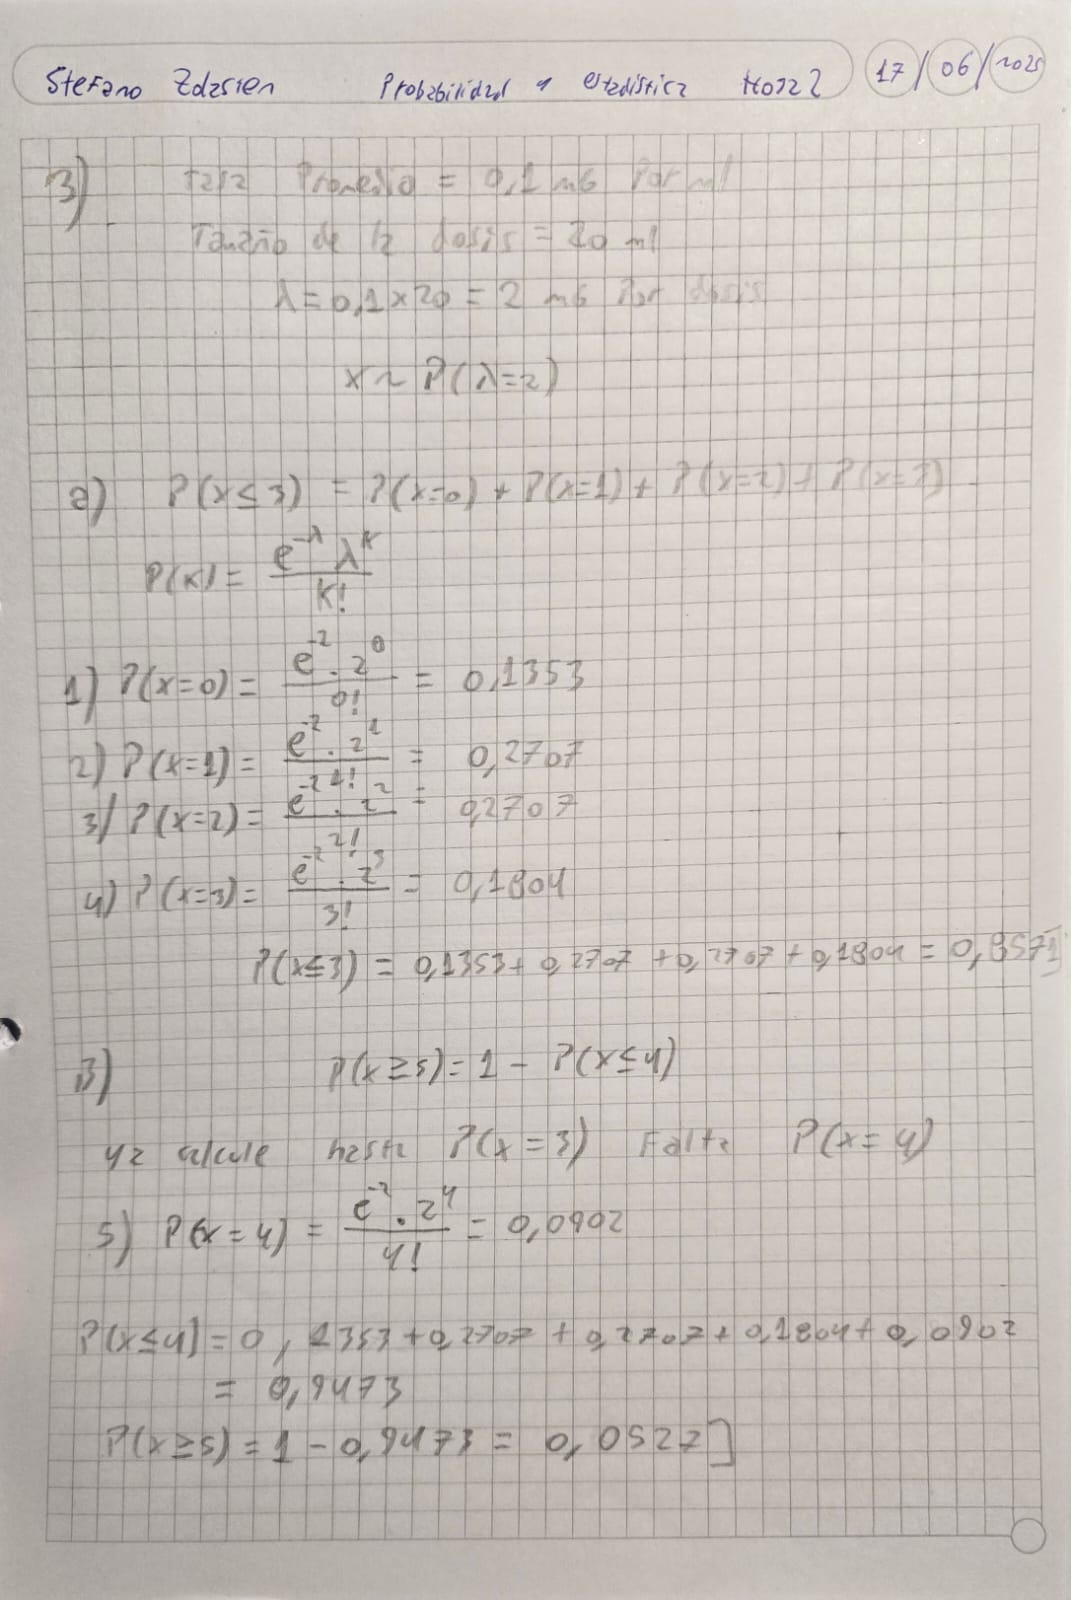 Stefano Zdrsien Probabilidad y estadistica Hoja 2 17/06/2025
3) tasa Promedio = 0,1 mG Por ml
Tamaño de la dosis = 20 ml
λ = 0,1 x 20 = 2 mG Por dosis
x ~ P(λ=2)
a) P(x ≤ 3) = P(x=0) + P(x=1) + P(x=2) + P(x=3)
P(K) = e^-λ λ^K / K!
1) P(x=0) = e^-2 · 2^0 / 0! = 0,1353
2) P(x=1) = e^-2 · 2^1 / 1! = 0,2707
3) P(x=2) = e^-2 · 2^2 / 2! = 0,2707
4) P(x=3) = e^-2 · 2^3 / 3! = 0,1804
P(x≤3) = 0,1353 + 0,2707 + 0,2707 + 0,1804 = 0,8571
B) P(x ≥ 5) = 1 - P(x ≤ 4)
ya calcule hasta P(x = 3) Falta P(x = 4)
5) P(x = 4) = e^-2 · 2^4 / 4! = 0,0902
P(x≤4) = 0,1353 + 0,2707 + 0,2707 + 0,1804 + 0,0902
= 0,9473
P(x≥5) = 1 - 0,9473 = 0,0527